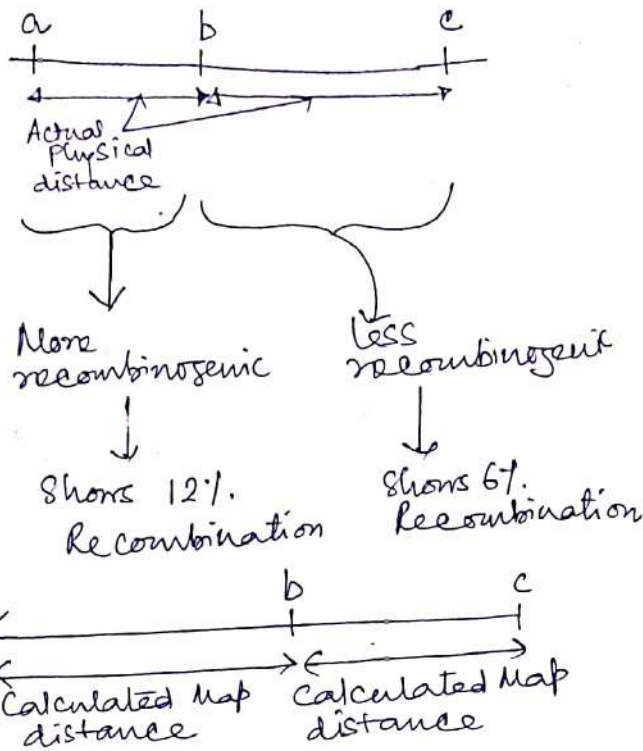 a b c
Actual
Physical
distance
More
recombinogenic
Less
recombinogenic
Shows 12%.
Recombination
Shows 6%.
Recombination
b c
Calculated Map
distance
Calculated Map
distance